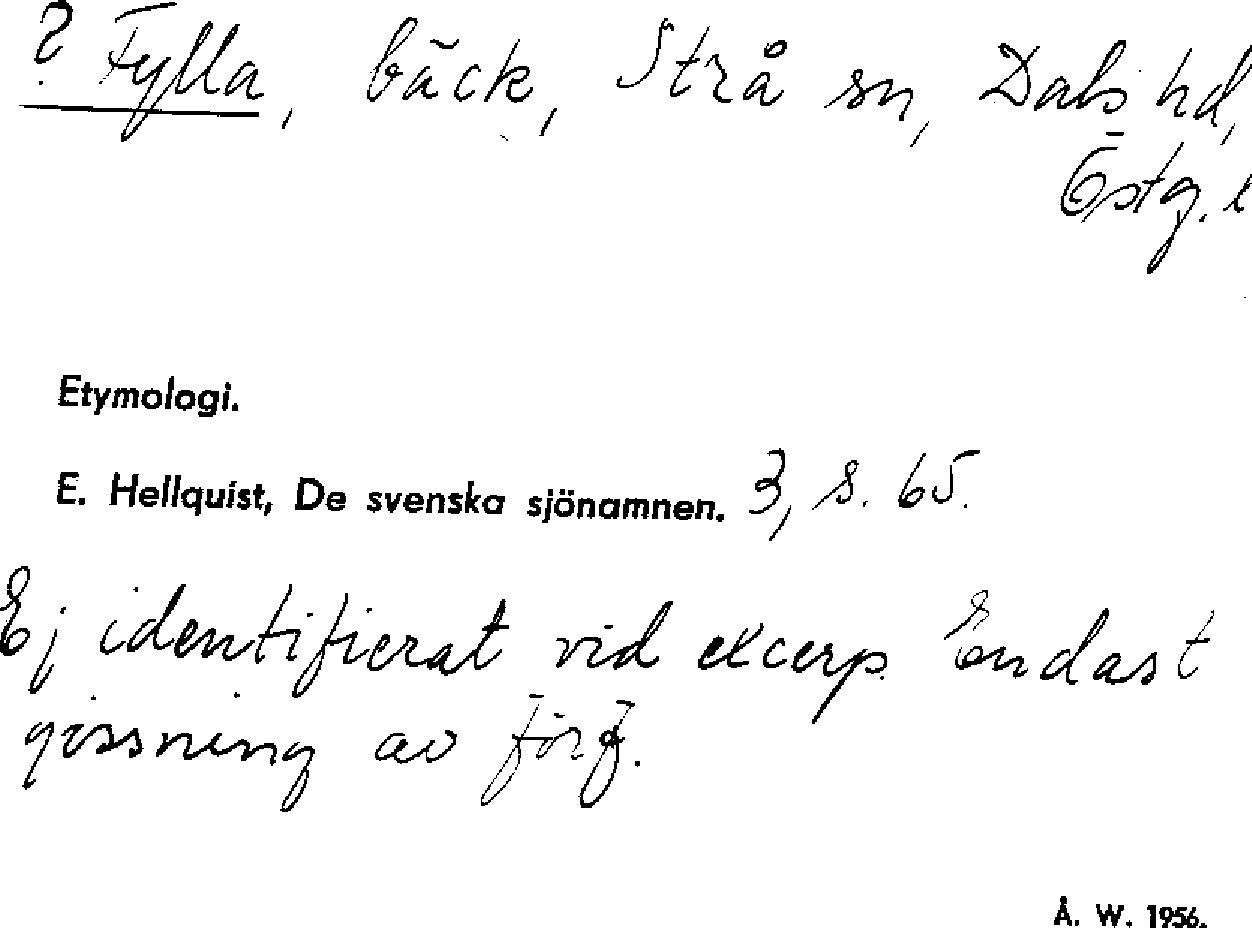 ? Fylla, bäck, Strå sn, Dals hd,
Östg. l
Etymologi.
E. Hellquist, De svenska sjönamnen. 3, s. 65.
Ej identifierat vid excerp. Endast
gissning av förf.
Å. W. 1956.